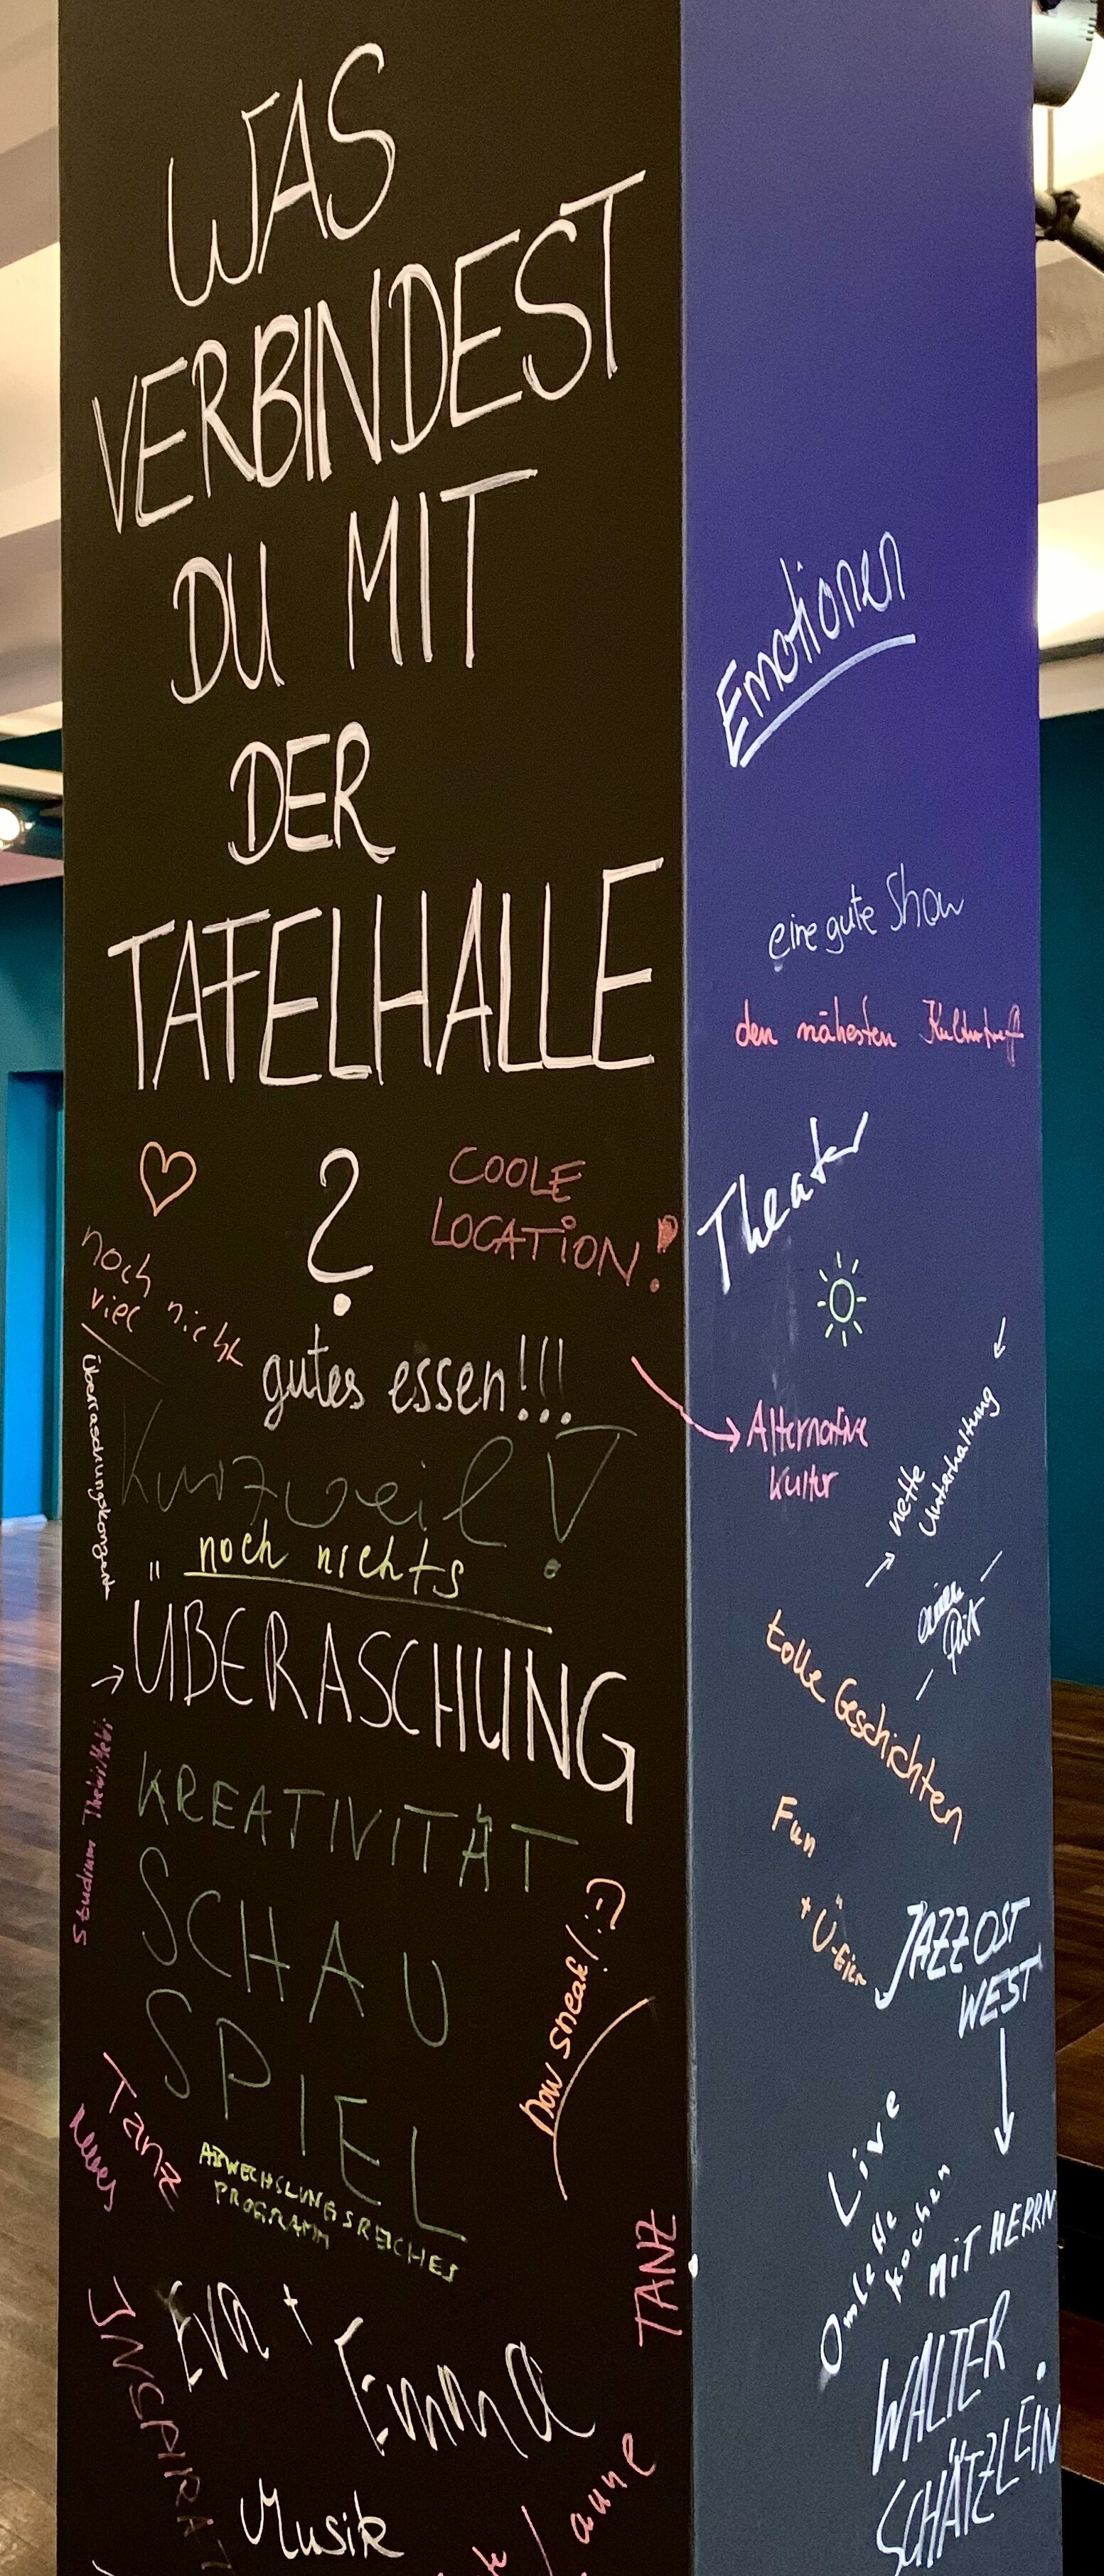 WAS
VERBINDEST
DU MIT
DER
TAFELHALLE
?
COOLE
LOCATION!
noch nicht
viel
gutes essen!!!
Überraschungskonzert
Kurzweil!
noch nichts
ÜBERASCHUNG
KREATIVITÄT
Studium
SCHAU
SPIEL
now sneak! :-)
Tanz
neues
ABWECHSLUNGSREICHES
PROGRAMM
TANZ
Eva +
Emma
INSPIRAT
Musik
Laune
Emotionen
eine gute Show
den nähesten
Theater
Alternative
Kultur
nette
Unterhaltung
tolle Geschichten
Fun
+ Ü-Eier
JAZZ OST
WEST
Live
Omlette
kochen
MIT HERRN
WALTER
SCHÄTZLEIN